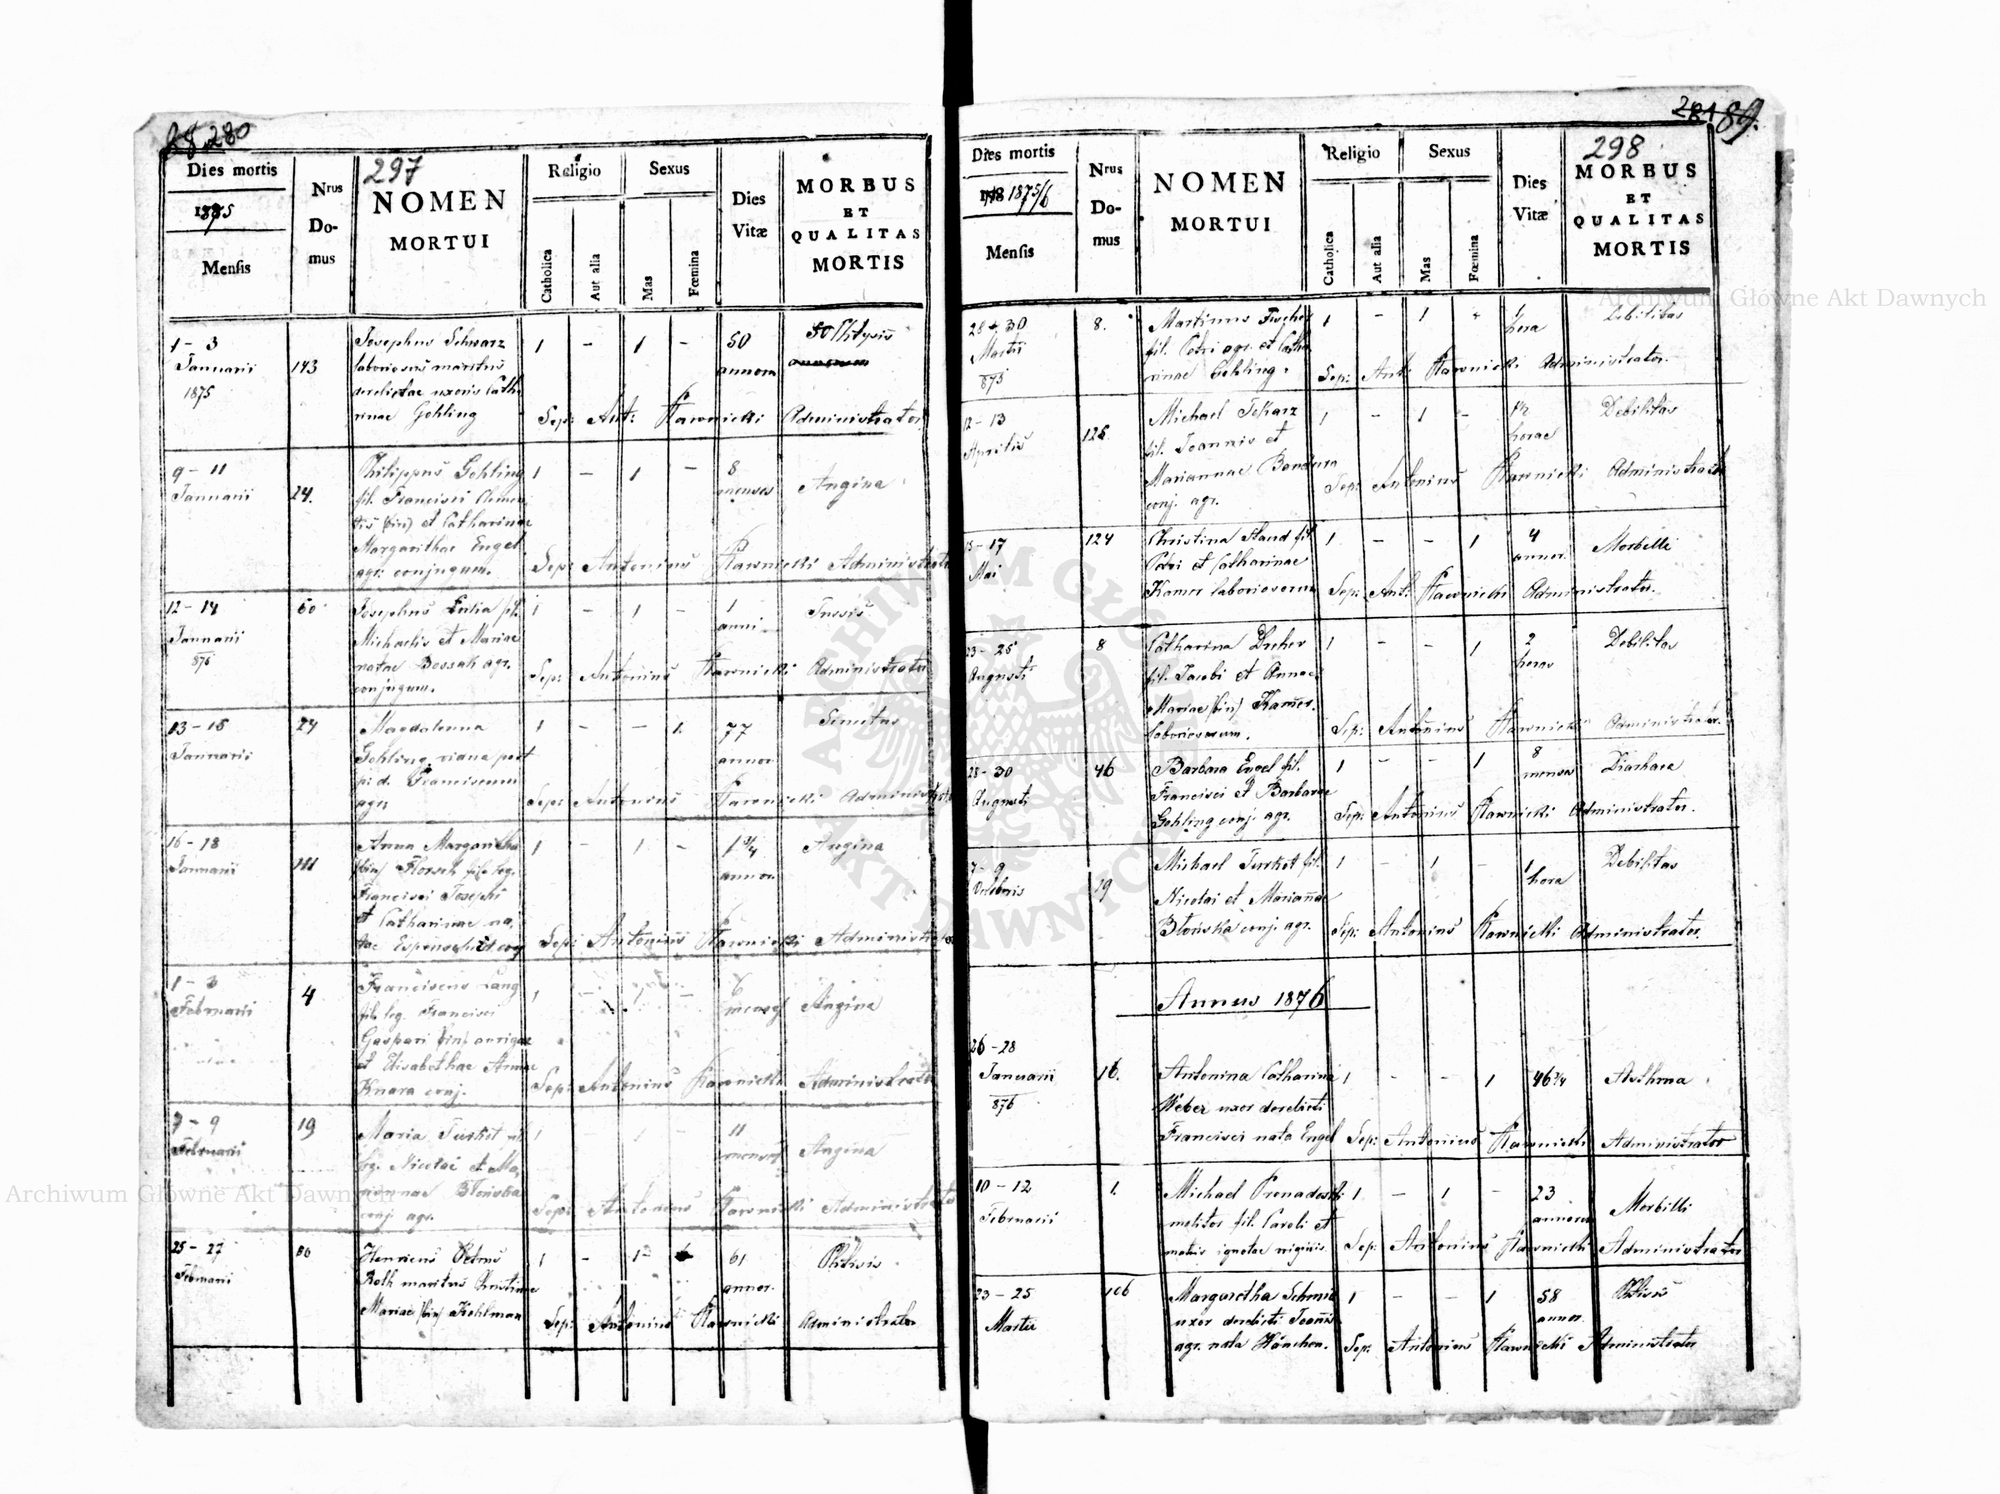 88. 280
297
Dies mortis
1875
Mensis
Nrus
Do-
mus
NOMEN
MORTUI
Religio
Catholica
Aut alia
Sexus
Mas
Fœmina
Dies
Vitæ
MORBUS
ET
QUALITAS
MORTIS
1 - 3
Januarii
1875
143
Josephus Schwarz
laboriosus maritus
derelictae uxoris Catha
rinae Gohling
1 - 1 -
50
annor
Phtysis
Sep: Ant: Rawnicki Administrator
9 - 11
Januarii
24.
Philippus Gohling
fil. Francisci Clemen
tis (bin) et Catharinae
Margarithae Engel
agr. conjugum.
1 - 1 -
8
menses
Angina
Sep: Antonius Rawnicki Administrator
12 - 14
Januarii
875
60
Josephus fil.
Michaelis et Mariae
natae Bossah agr.
conjugum.
1 - 1 -
1
anni
Tussis
Sep: Antonius Rawnicki Administrator
13 - 15
Januarii
24
Magdalena
Gohling, viana post
p: d. Franciscum
agr.
1 - - 1.
77
annor
Senectus
Sep: Antonius Rawnicki Administrator
16 - 18
Januarii
111
Anna Margaritha
(bin) Florsch fil. leg.
Francisci Josephi
et Catharinae na,
tae conj
1 - 1 -
1 3/4
annor
Angina
Sep: Antonius Rawnicki Administrator
1 - 3
Februarii
4
Franciscus Lang
fil. leg. Francisci
Gaspari (bin) aurigae
et Elisabethae Annae
Knara conj.
1 - 1 -
6
menses
Angina
Sep: Antonius Rawnicki Administrator
7 - 9
Februarii
19
Maria Turkot fil.
leg. Nicolai et Ma,
riannae Błońska
conj. agr.
1 - 1 -
11
menses
Angina
Sep: Antonius Rawnicki Administrator
25 - 27
Februarii
80
Henricus Petrus
Roth maritus Christinae
Mariae (bin) Kohlman
1 - 1
61
annor.
Phtisis
Sep: Antonius Rawnicki Administrator
281 89.
298
Dies mortis
1875/6
Mensis
Nrus
Do-
mus
NOMEN
MORTUI
Religio
Catholica
Aut alia
Sexus
Mas
Fœmina
Dies
Vitæ
MORBUS
ET
QUALITAS
MORTIS
28 - 30
Martii
875
8.
Martinus Fischer
fil. Petri agr. et Catha
rinae Gohling.
1 - 1 -
hora
Debilitas
Sep: Ant: Rawnicki Administrator.
12 - 13
Aprilis
125
Michael Tekarz
fil. Joannis et
Mariannae Bandura
conj. agr.
1 - 1 -
12
horae
Debilitas
Sep: Antonius Rawnicki Administrator
15 - 17
Mai
124
Christina Staud fil.
Petri et Catharinae
Kamer laboriosorum
1 - - 1
4
annor.
Morbilli
Sep: Ant: Rawnicki Administrator.
23 - 25
Augusti
8
Catharina Dreher
fil. Jacobi et Annae
Mariae (bin) Kamer.
laboriosorum.
1 - - 1
2
horas
Debilitas
Sep: Antonius Rawnicki Administrator.
28 - 30
Augusti
46
Barbara Engel fil.
Francisci et Barbarae
Gohling conj. agr.
1 - - 1
8
menses
Diarhaea
Sep: Antonius Rawnicki Administrator.
7 - 9
Octobris
19
Michael Turkot fil.
Nicolai et Mariannae
Błońska conj. agr.
1 - 1 -
1
hora
Debilitas
Sep: Antonius Rawnicki Administrator.
Annus 1876
26 - 28
Januarii
876
16.
Antonina Catharina
Weber uxor derelicti
Francisci nata Engel
1 - - 1
46 3/4
Asthma
Sep: Antonius Rawnicki Administrator
10 - 12
Februarii
1.
Michael
molitor fil. Caroli et
matris ignotae
1 - 1 -
23
annorum
Morbilli
Sep: Antonius Rawnicki Administrator
23 - 25
Martii
106
Margaretha Schmid
uxor derelicti Joannis
agr. nata
1 - - 1
58
annor.
Phtisis
Sep: Antonius Rawnicki Administrator
Archiwum Główne Akt Dawnych
Archiwum Główne Akt Dawnych
ARCHIWUM GŁÓWNE AKT DAWNYCH